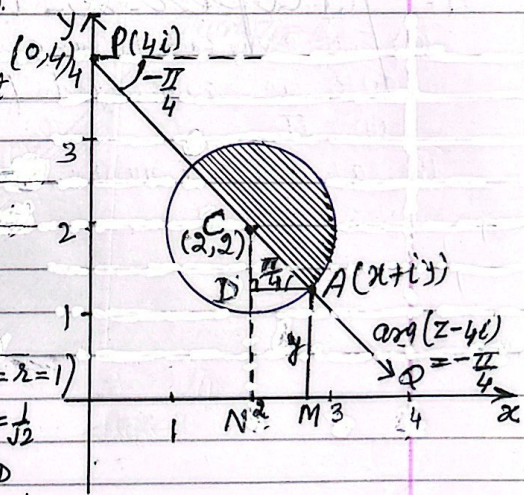 y
(0,4) P(4i)
4
-π/4
3
2
C
(2,2)
D π/4 A(x+iy)
1
y
arg(z-4i)
= -π/4
Q
= r = 1)
= 1/√2
1 N 2 M 3 4 x
D